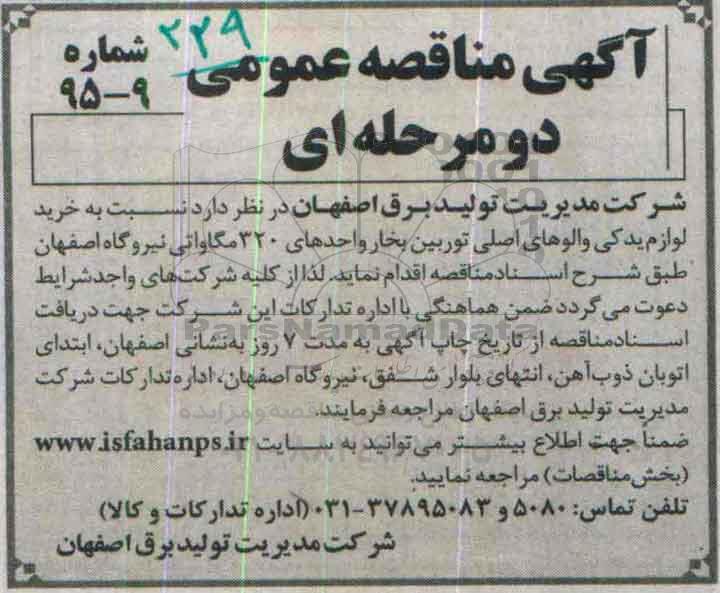 ۲۲۹
آگهی مناقصه عمومی
شماره
۹-۹۵
دو مرحله ای
شرکت مدیریت تولید برق اصفهان در نظر دارد نسبت به خرید
لوازم یدکی والوهای اصلی توربین بخار واحدهای ۳۲۰ مگاواتی نیروگاه اصفهان
طبق شرح اسناد مناقصه اقدام نماید. لذا از کلیه شرکت‌های واجد شرایط
دعوت می گردد ضمن هماهنگی با اداره تدارکات این شرکت جهت دریافت
اسناد مناقصه از تاریخ چاپ آگهی به مدت ۷ روز به‌نشانی اصفهان، ابتدای
اتوبان ذوب‌آهن، انتهای بلوار شفق، نیروگاه اصفهان، اداره تدارکات شرکت
مدیریت تولید برق اصفهان مراجعه فرمایند.
ضمناً جهت اطلاع بیشتر می‌توانید به سایت www.isfahanps.ir
(بخش مناقصات) مراجعه نمایید.
تلفن تماس: ۵۰۸۰ و ۳۷۸۹۵۰۸۳-۰۳۱ (اداره تدارکات و کالا)
شرکت مدیریت تولید برق اصفهان
ParsNamadData